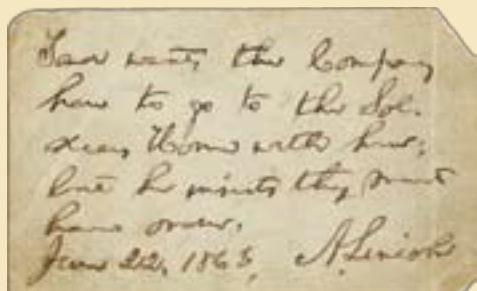 Tad wants the Company
here to go to the Sol-
diers Home with him;
but he insists they must
have orders,
June 22, 1863, A. Lincoln